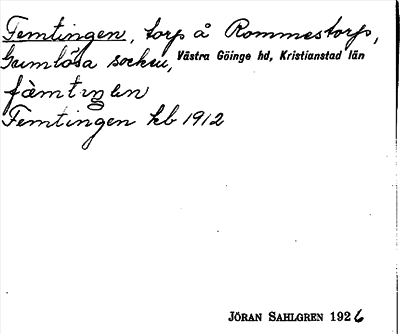 Femtingen, torp å Rommestorp,
Gumlösa socken, Västra Göinge hd, Kristianstad län
fämtıŋen
Femtingen kb 1912
JÖRAN SAHLGREN 1926